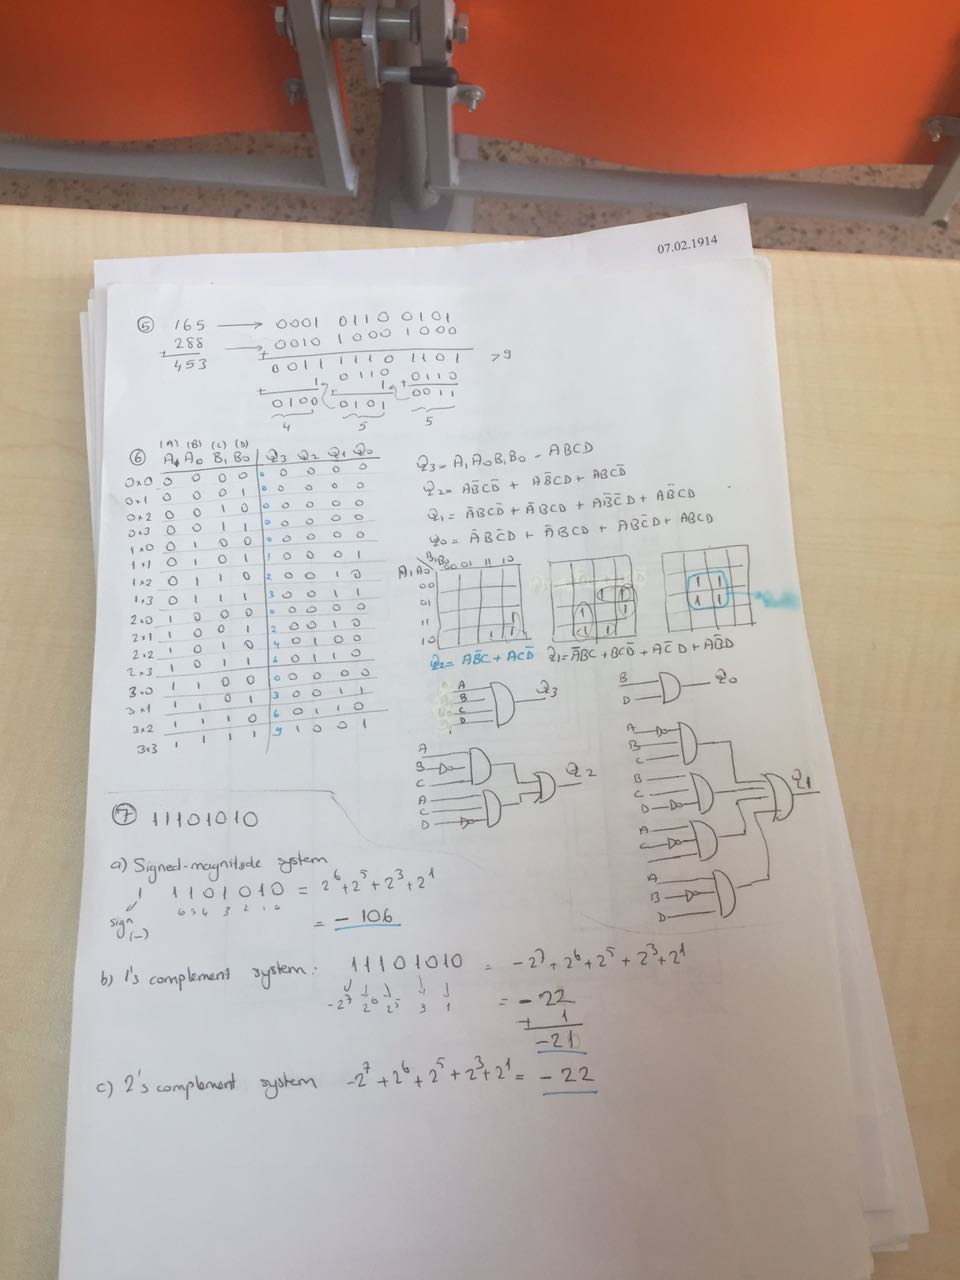 07.02.1914
5 165 → 0001 0110 0101
+ 288 → + 0010 1000 1000
453 0011 1110 1101 >9
+ 1 + 0110 1 + 0110
0100 0101 0011
4 5 5
6 (A) (B) (C) (D)
A1 A0 B1 B0 Q3 Q2 Q1 Q0
0x0 0 0 0 0 0 0 0 0 0
0x1 0 0 0 1 0 0 0 0 0
0x2 0 0 1 0 0 0 0 0 0
0x3 0 0 1 1 0 0 0 0 0
1x0 0 1 0 0 0 0 0 0 0
1x1 0 1 0 1 1 0 0 0 1
1x2 0 1 1 0 2 0 0 1 0
1x3 0 1 1 1 3 0 0 1 1
2x0 1 0 0 0 0 0 0 0 0
2x1 1 0 0 1 2 0 0 1 0
2x2 1 0 1 0 4 0 1 0 0
2x3 1 0 1 1 6 0 1 1 0
3x0 1 1 0 0 0 0 0 0 0
3x1 1 1 0 1 3 0 0 1 1
3x2 1 1 1 0 6 0 1 1 0
3x3 1 1 1 1 9 1 0 0 1
Q3 = A1 A0 B1 B0 = ABCD
Q2 = AB̄CD̄ + AB̄CD + ABCD̄
Q1 = ĀBCD̄ + ĀBCD + AB̄C̄D + AB̄CD
Q0 = ĀBC̄D + ĀBCD + ABC̄D + ABCD
A1A0 B1B0 00 01 11 10
00
01
11 1
10 1 1
1 1
1 1
1 1
1 1
1 1
1 1
Q2 = AB̄C + ACD̄ Q1 = ĀBC + BCD̄ + AC̄D + AB̄D
A B C D Q3
B D Q0
A B C
A C D Q2
A B C
B C D
A C
A B D Q1
7 11101010
a) Signed-magnitude system
1 1101010 = 2⁶+2⁵+2³+2¹
sign (-) 6 5 4 3 2 1 0
= - 106
b) 1's complement system: 11101010 = -2⁷+2⁶+2⁵+2³+2¹
-2⁷ 2⁶ 2⁵ 3 1 = - 22
+ 1
-21
c) 2's complement system -2⁷+2⁶+2⁵+2³+2¹ = - 22